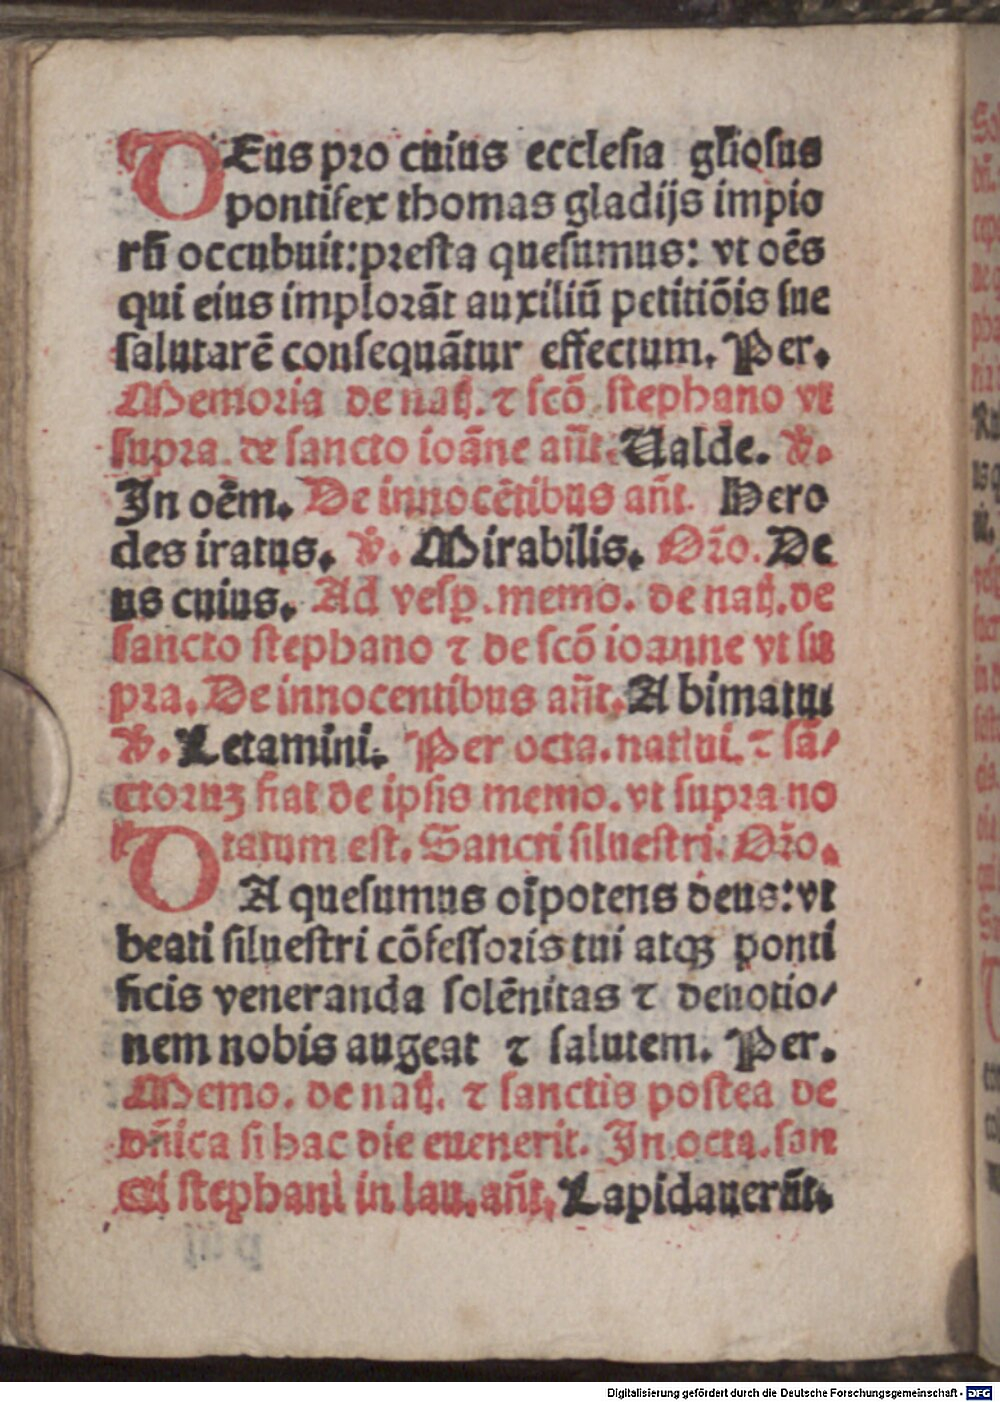 DEus pro cuius ecclesia gl̄iosus
pontifex thomas gladijs impio
rū occubuit: presta quesumus: vt oēs
qui eius implorāt auxiliū petitiōis sue
salutarē consequātur effectum. Per.
Memoria de nati. ⁊ scō stephano vt
supra de sancto ioāne an̄t. Ualde. ℣.
In oēm. De innocētibus an̄t. Hero
des iratus. ℣. Mirabilis. Or̄o. De
us cuius. Ad vesp̄. memo. de nati. de
sancto stephano ⁊ de scō ioanne vt su
pra. De innocentibus an̄t. A bimatu
℣. Letamini. Per octa. natiui. ⁊ sā/
ctoruꝫ fiat de ipsis memo. vt supra no
tatum est. Sancti siluestri. Or̄o.
DA quesumus oīpotens deus: vt
beati siluestri cōfessoris tui atqꝫ ponti
ficis veneranda solēnitas ⁊ deuotio/
nem nobis augeat ⁊ salutem. Per.
Memo. de nati. ⁊ sanctis postea de
dn̄ica si hac die euenerit. In octa. san
cti stephani in lau. an̄t. Lapidauerūt.
Digitalisierung gefördert durch die Deutsche Forschungsgemeinschaft - DFG